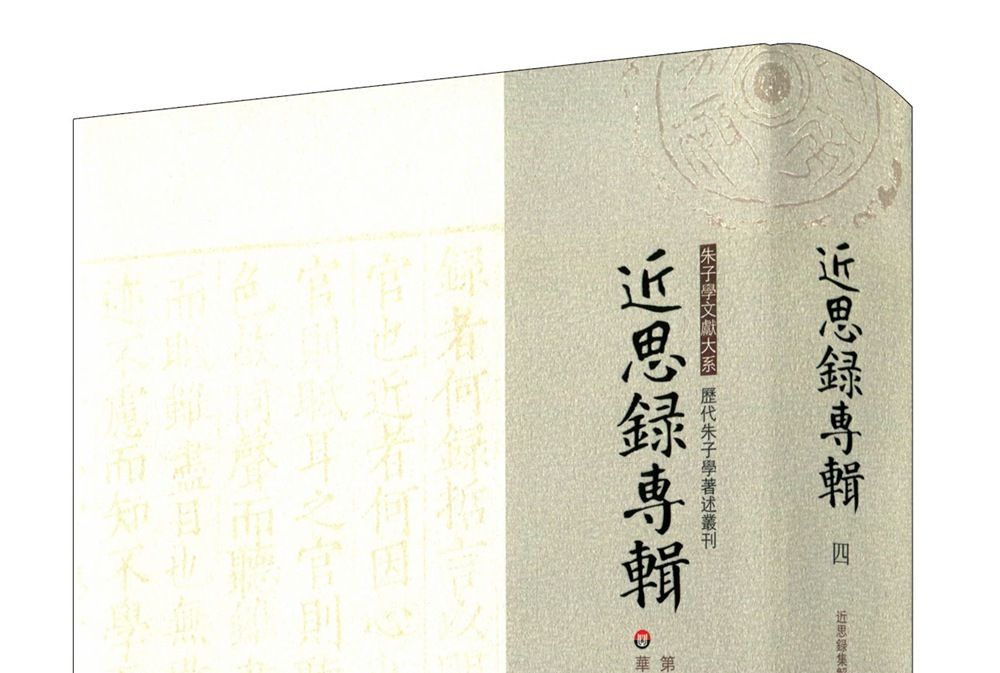 近思録專輯
四
近思録集
朱子學文獻大系
歷代朱子學著述叢刊
近思録專輯
第
華
録者何録哲言以
官也近者何因心
官則眡耳之官則
色故同聲而聽
而眡
盡目也無
述不慮而知不學